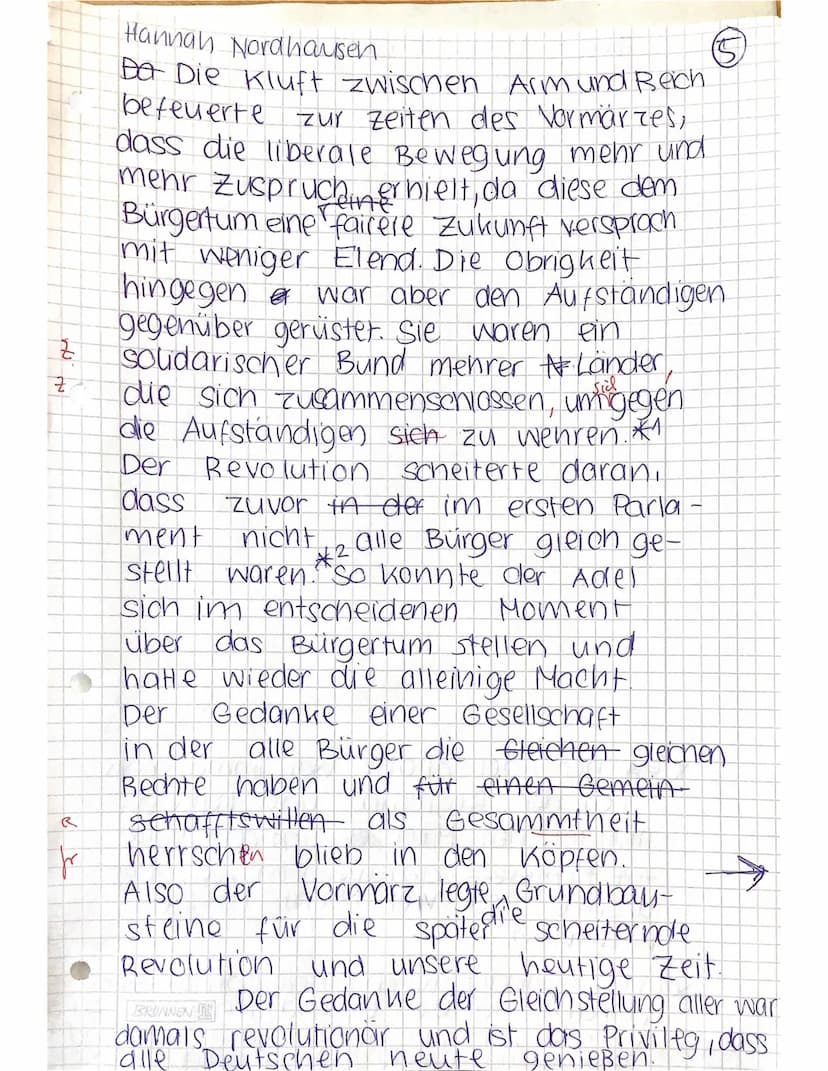 Hannah Nordhausen
5
Da Die Kluft zwischen Arm und Reich
befeuerte zur Zeiten des Vormärzes,
dass die liberale Bewegung mehr und
mehr Zuspruch erhielt, da diese dem
eine
Bürgertum eine fairere Zukunft versprach
mit weniger Elend. Die Obrigkeit
hingegen war aber den Aufständigen
gegenüber gerüstet. Sie waren ein
Z solidarischer Bund mehrer Länder,
sich
Z die sich zusammenschlossen, um gegen
die Aufständigen sich zu wehren. *1
Der Revolution scheiterte daran,
dass zuvor in der im ersten Parla-
ment nicht alle Bürger gleich ge-
stellt waren. *2 So konnte der Adel
sich im entscheidenen Moment
über das Bürgertum stellen und
hatte wieder die alleinige Macht.
Der Gedanke einer Gesellschaft
in der alle Bürger die Gleichen gleichen
Rechte haben und für einen Gemein-
R schafftswillen als Gesammtheit
herrschen blieb in den Köpfen.
→
Also der Vormärz legte Grundbau-
die
steine für die später scheiternde
Revolution und unsere heutige Zeit.
BRUNNEN
Der Gedanke der Gleichstellung aller war
damals revolutionär und ist das Privileg, dass
alle Deutschen heute genießen.